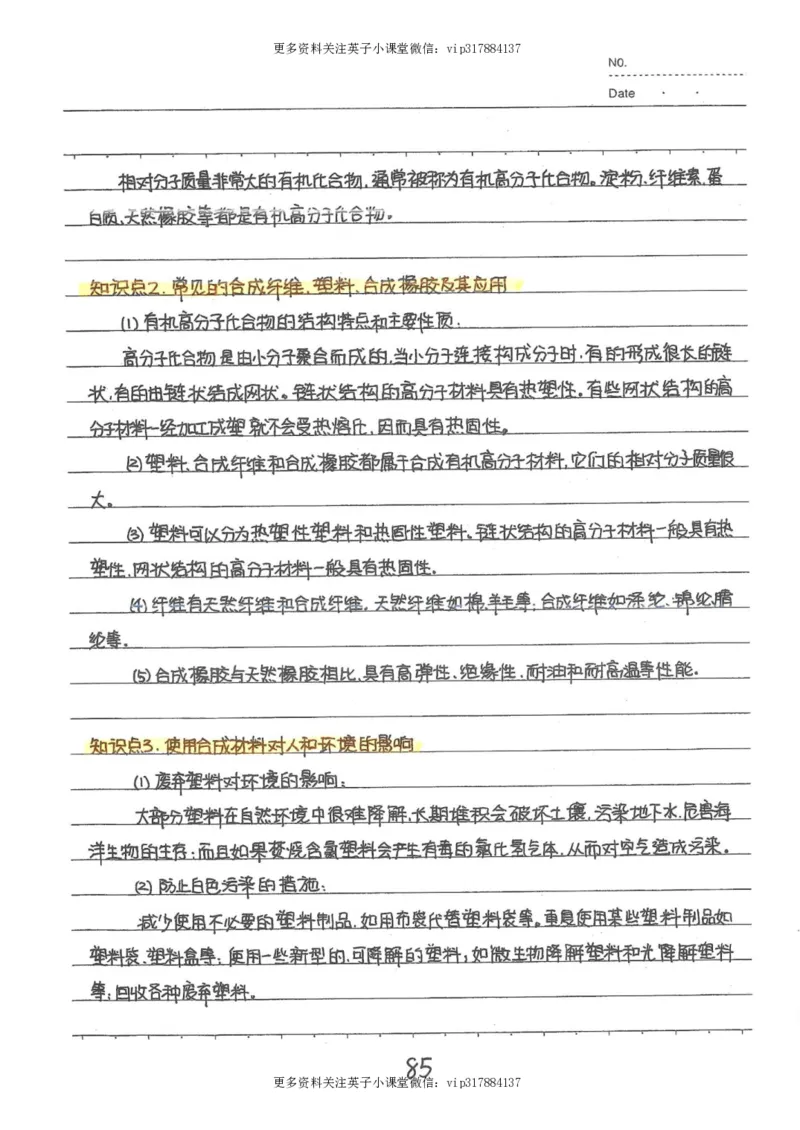 更多资料关注英子小课堂微信：vip317884137
NO.
Date
相对分子质量非常大的有机化合物,通常被称为有机高分子化合物。淀粉、纤维素、蛋
白质、天然橡胶等都是有机高分子化合物。
知识点2. 常见的合成纤维、塑料、合成橡胶及其应用
(1)有机高分子化合物的结构特点和主要性质:
高分子化合物是由小分子聚合而成的,当小分子连接构成分子时,有的形成很长的链
状,有的由链状结成网状。链状结构的高分子材料具有热塑性。有些网状结构的高
分子材料一经加工成塑就不会受热熔化,因而具有热固性。
(2)塑料、合成纤维和合成橡胶都属于合成有机高分子材料,它们的相对分子质量很
大。
(3)塑料可以分为热塑性塑料和热固性塑料。链状结构的高分子材料一般具有热
塑性,网状结构的高分子材料一般具有热固性.
(4)纤维有天然纤维和合成纤维。天然纤维如棉、羊毛等;合成纤维如涤纶、锦纶、腈
纶等.
(5)合成橡胶与天然橡胶相比,具有高弹性、绝缘性、耐油和耐高温等性能.
知识点3. 使用合成材料对人和环境的影响
(1)废弃塑料对环境的影响:
大部分塑料在自然环境中很难降解,长期堆积会破坏土壤,污染地下水,危害海
洋生物的生存;而且如果焚烧含氯塑料会产生有毒的氯化氢气体,从而对空气造成污染。
(2)防止白色污染的措施:
减少使用不必要的塑料制品,如用布袋代替塑料袋等。重复使用某些塑料制品如
塑料袋、塑料盒等;使用一些新型的、可降解的塑料,如微生物降解塑料和光降解塑料
等;回收各种废弃塑料。
85
更多资料关注英子小课堂微信：vip317884137